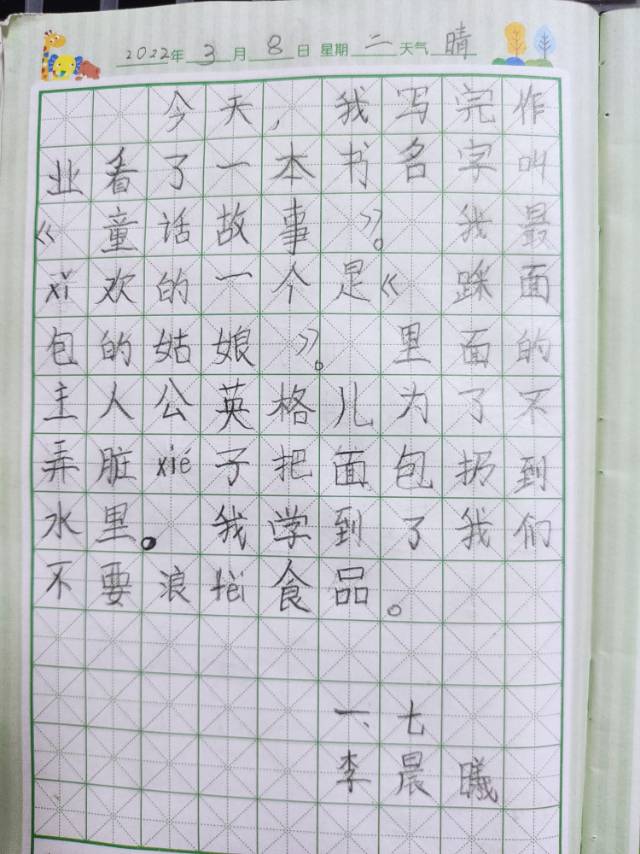 2022年3月8日 星期二 天气晴
今天，我写完作
业看了一本书名字叫
《童话故事》。我最
xǐ欢的一个是《踩面
包的姑娘》。里面的
主人公英格儿为了不
弄脏xié子把面包扔到
水里。我学到了我们
不要浪fèi食品。
一、七
李晨曦